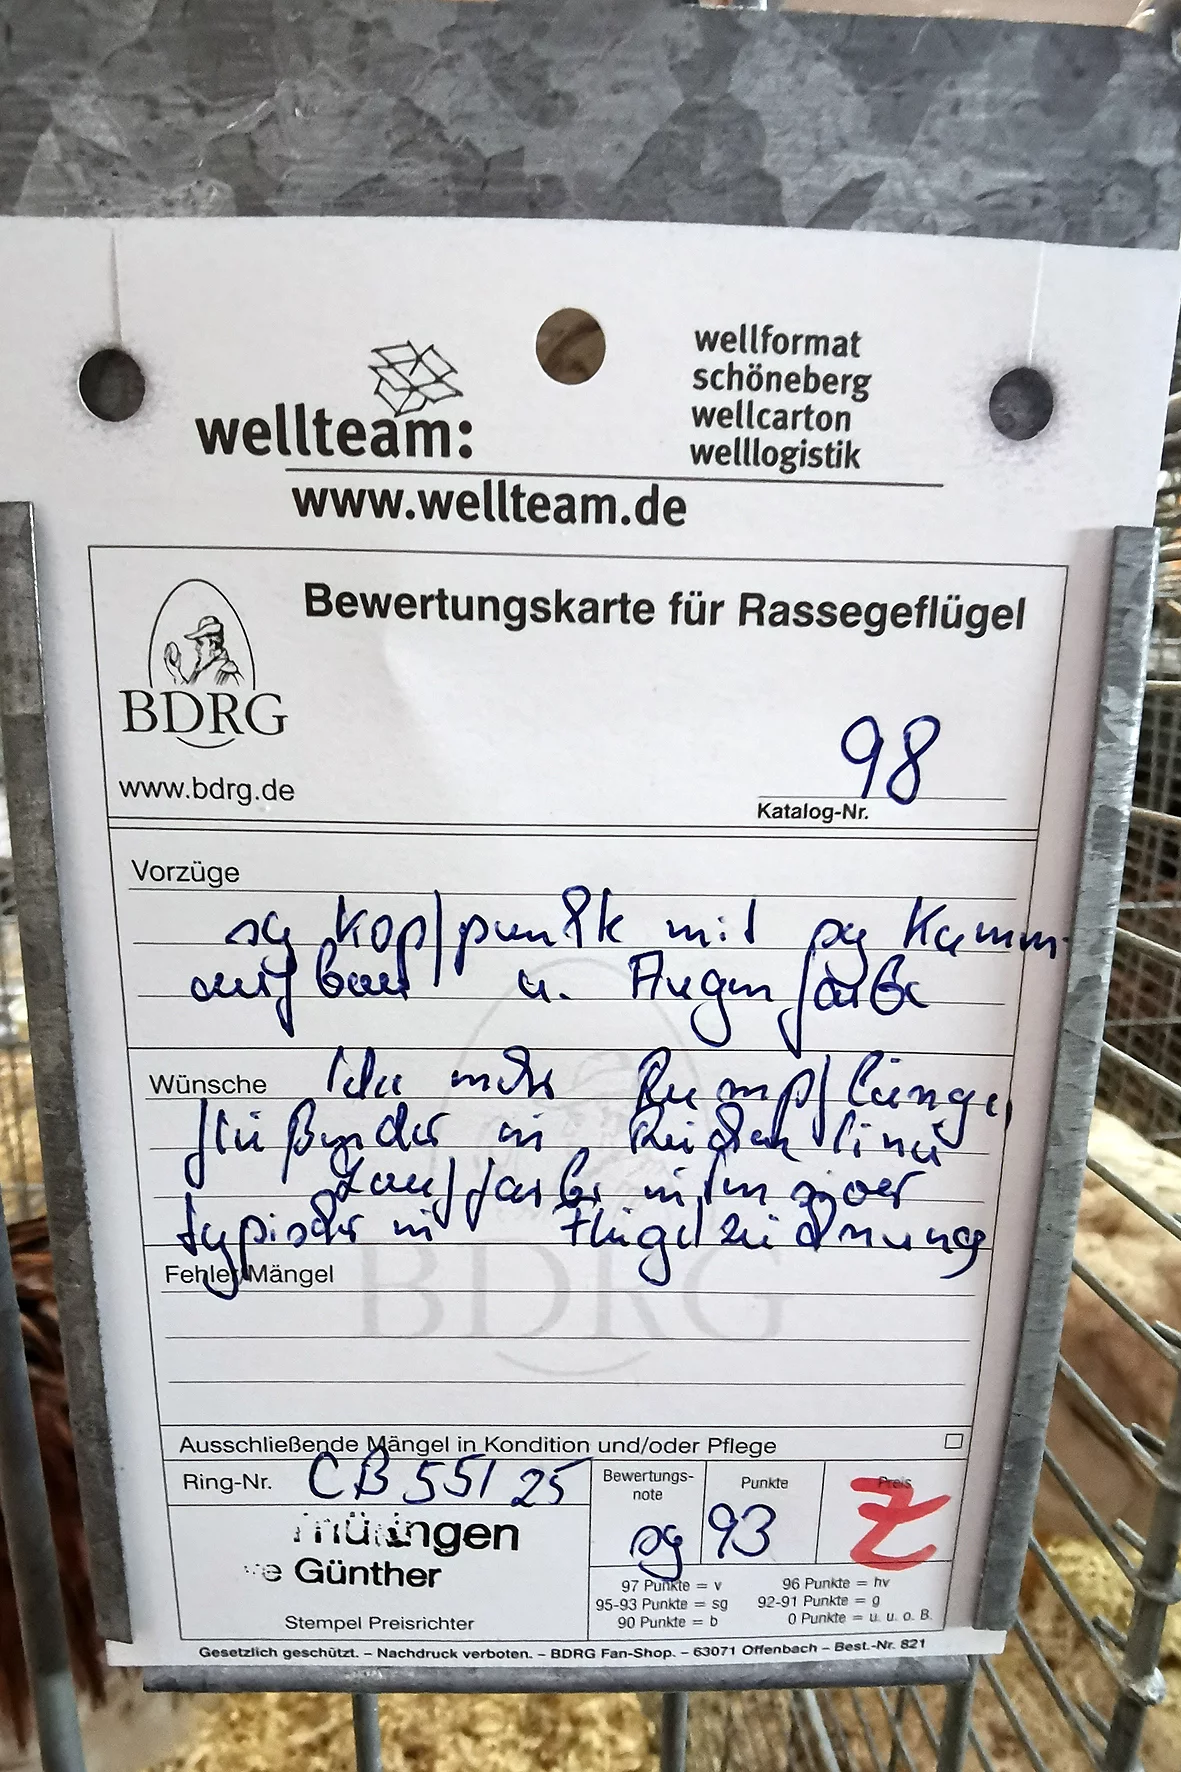 wellteam:
www.wellteam.de
wellformat
schöneberg
wellcarton
welllogistik
BDRG
www.bdrg.de
Bewertungskarte für Rassegeflügel
98
Katalog-Nr.
Vorzüge
sg Kopfpunkte mit sg Kamm-
aufbau u. Augenfarbe
Wünsche Idee mehr Rumpflänge,
fließender in Rückenlinie
Lauffarbe intensiver
typischer in Flügelzeichnung
Fehler/Mängel
BDRG
Ausschließende Mängel in Kondition und/oder Pflege
Ring-Nr. CB 551 25
Günther
Stempel Preisrichter
Bewertungs-
note
sg
Punkte
93
Preis
Z
97 Punkte = v 96 Punkte = hv
95-93 Punkte = sg 92-91 Punkte = g
90 Punkte = b 0 Punkte = u. u. o. B.
Gesetzlich geschützt. – Nachdruck verboten. – BDRG Fan-Shop. – 63071 Offenbach – Best.-Nr. 821